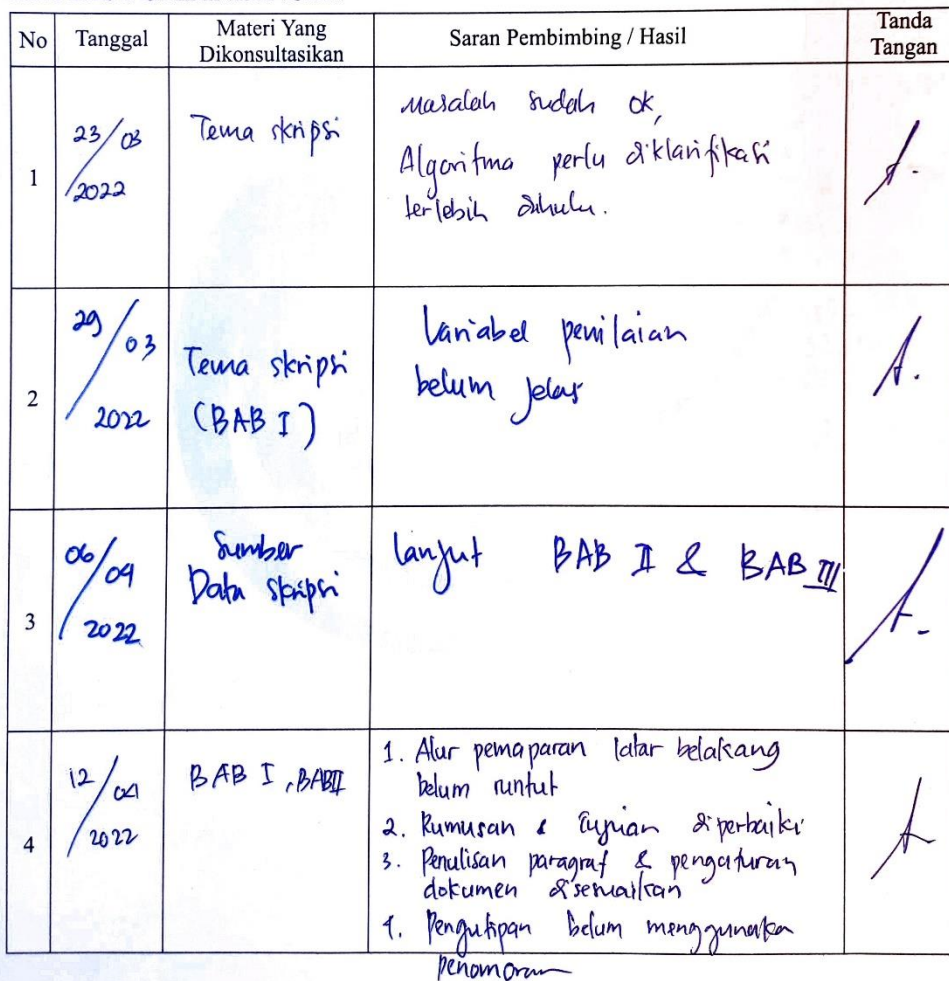 No
Tanggal
Materi Yang
Dikonsultasikan
Saran Pembimbing / Hasil
Tanda
Tangan
1
23/03
/2022
Tema skripsi
Masalah sudah ok,
Algoritma perlu diklarifikasi
terlebih dahulu.
2
29/03
2022
Tema skripsi
(BAB I)
Variabel penilaian
belum jelas
3
06/04
2022
Sumber
Data skripsi
lanjut BAB II & BAB III
4
12/04
2022
BAB I, BAB II
1. Alur pemaparan latar belakang
belum runtut
2. Rumusan & tujuan diperbaiki
3. Penulisan paragraf & pengaturan
dokumen disesuaikan
4. Pengutipan belum menggunaka
penomoran